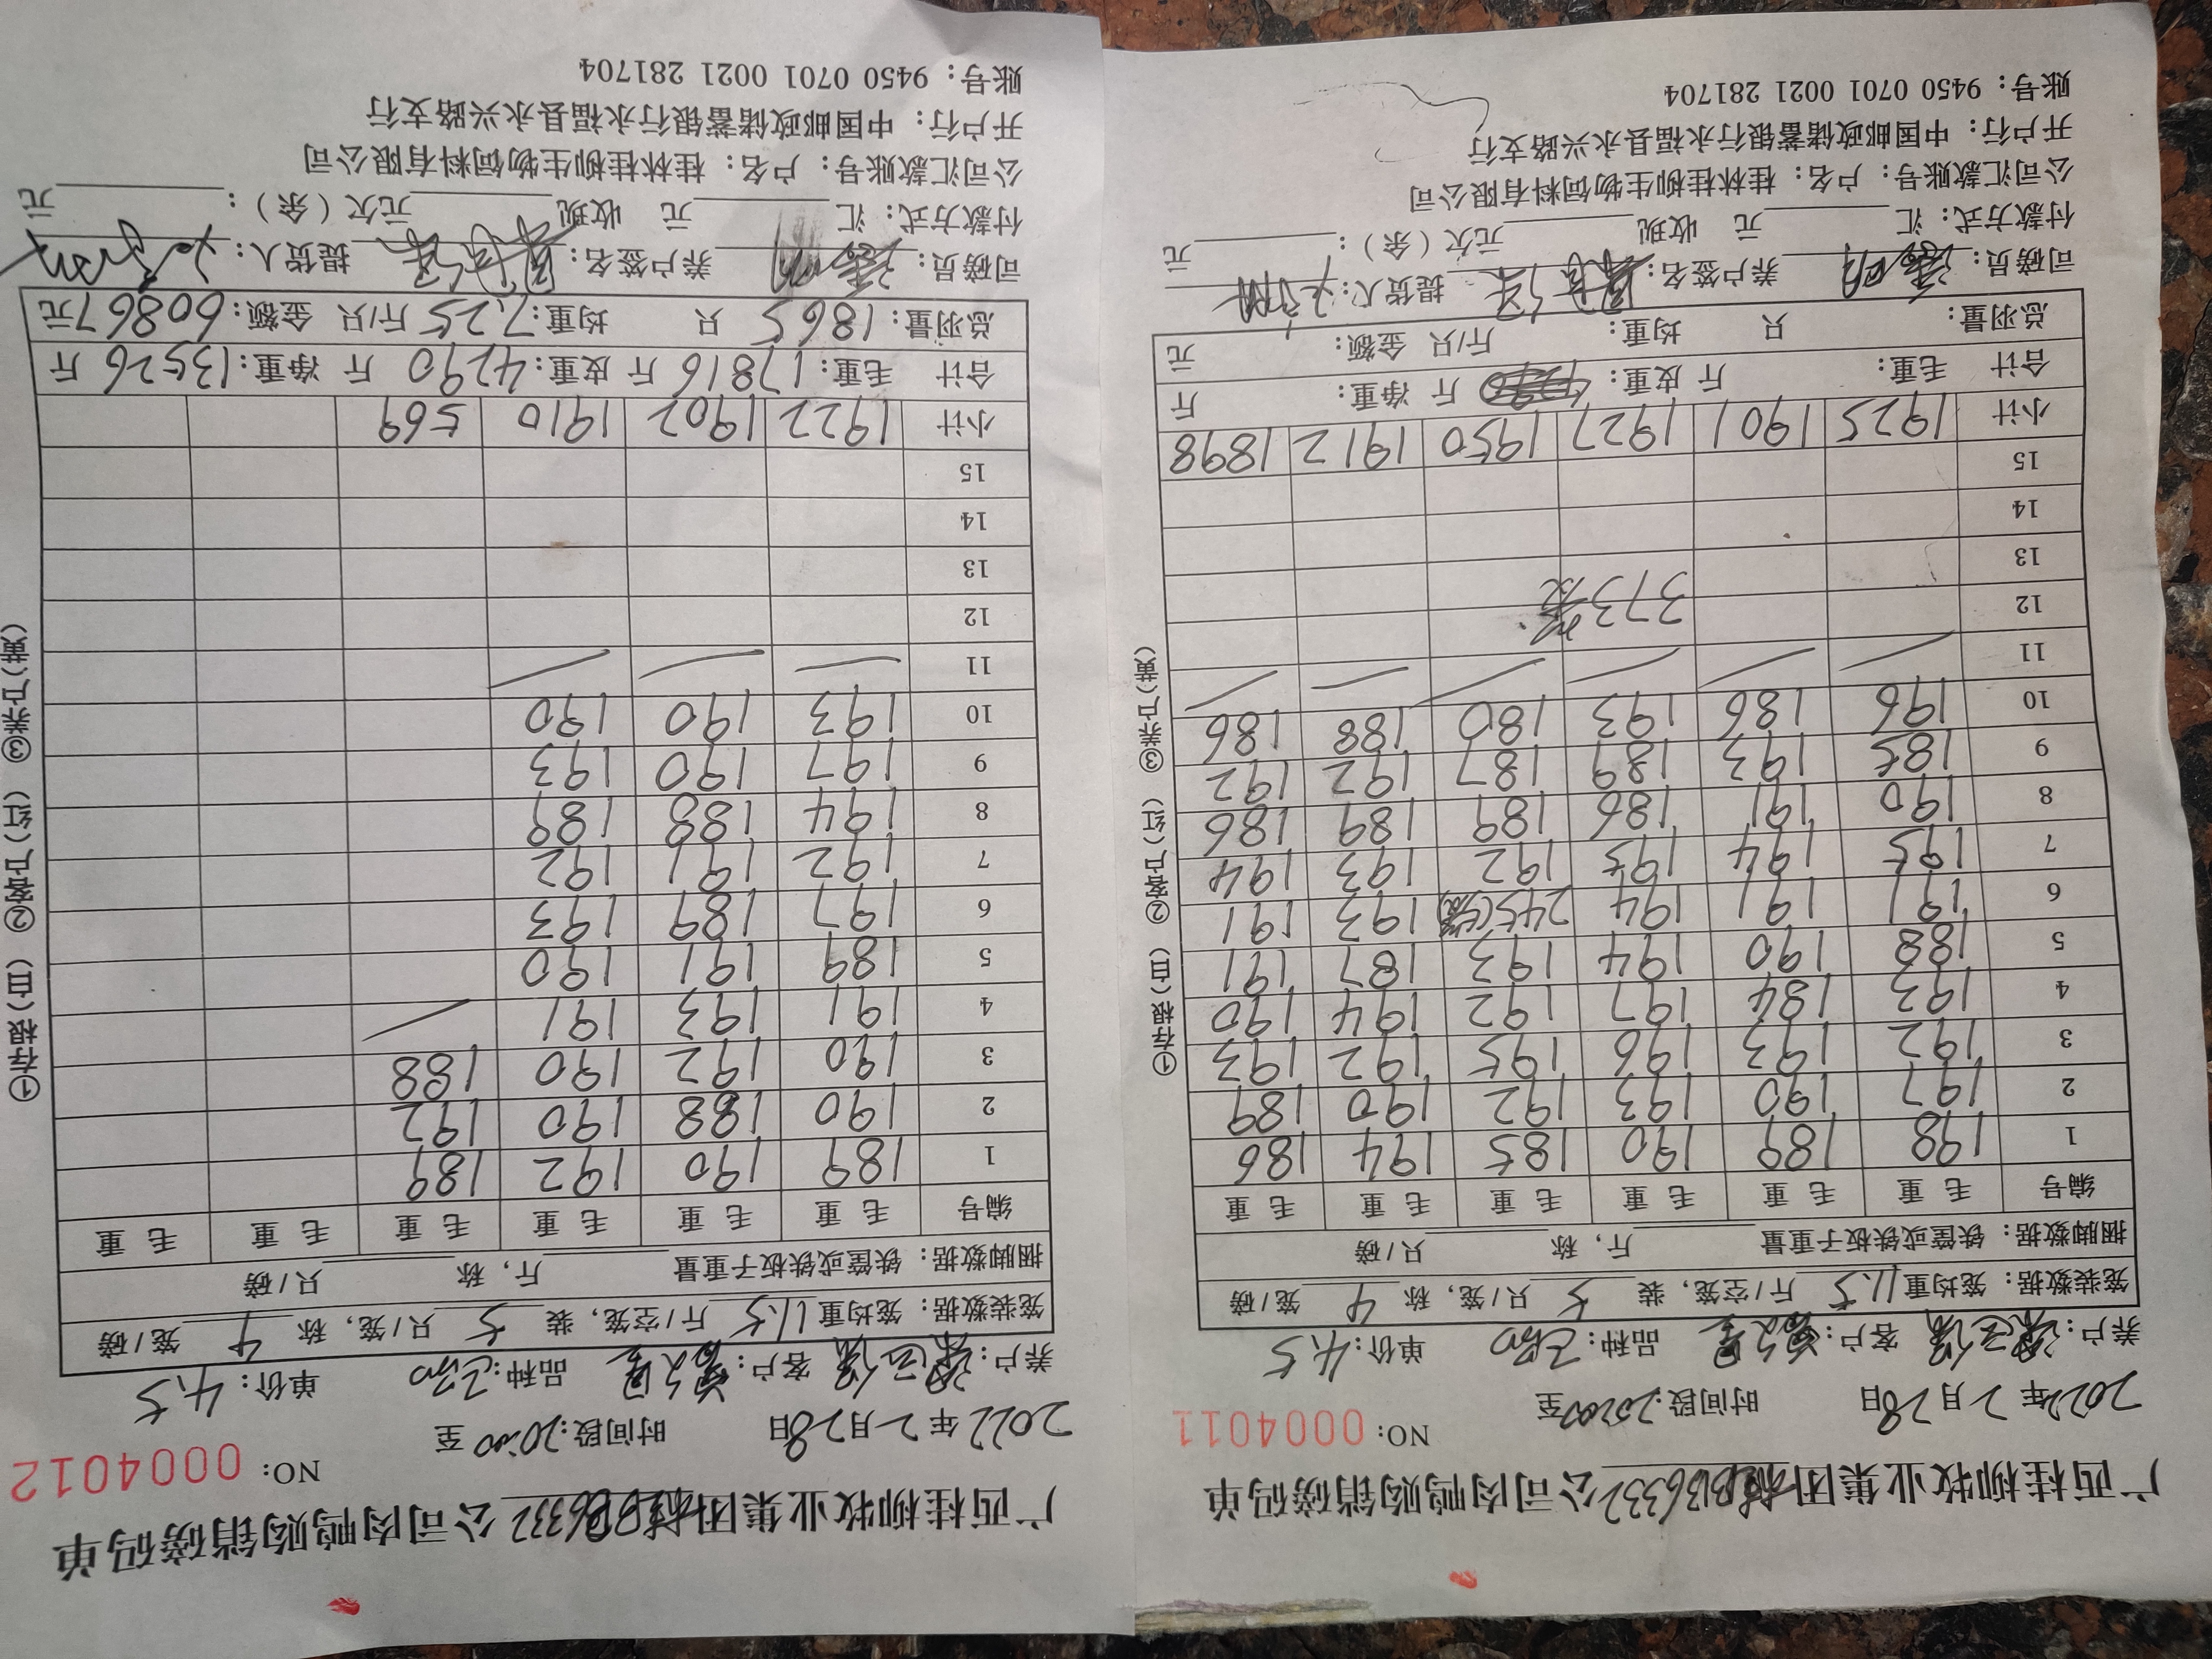 广西桂柳牧业集团桂BB6332公司肉鸭购销磅码单
NO: 0004011
2022年2月28日 时间段:20:00至
养户: 客户: 品种: 单价:4.5
笼装数据: 笼均重11.5斤/空笼, 装5只/笼, 称4笼/磅
捆脚数据: 铁筐或铁板子重量 斤, 称 只/磅
编号 毛重 毛重 毛重 毛重 毛重 毛重
1 198 189 190 185 194 186
2 197 190 193 192 190 189
3 192 193 196 195 192 193
4 193 184 197 192 194 190
5 188 190 194 193 187 191
6 191 191 194 245(5笼) 193 191
7 195 194 195 192 193 194
8 190 191 186 189 189 186
9 185 193 189 187 192 192
10 196 186 193 180 188 186
11
12 373笼
13
14
15
小计 1925 1901 1927 1950 1912 1898
合计 毛重: 斤 皮重: 斤 净重: 斤
总羽量: 只 均重: 斤/只 金额: 元
司磅员: 养户签名: 提货人:
付款方式: 汇 元 收现 元欠(余): 元
公司汇款账号: 户名: 桂林桂柳生物饲料有限公司
开户行: 中国邮政储蓄银行永福县永兴路支行
账号: 9450 0701 0021 281704
①存根(白) ②客户(红) ③养户(黄)
广西桂柳牧业集团桂BB6332公司肉鸭购销磅码单
NO: 0004012
2022年2月28日 时间段:20:00至
养户: 客户: 品种: 单价:4.5
笼装数据: 笼均重11.5斤/空笼, 装5只/笼, 称4笼/磅
捆脚数据: 铁筐或铁板子重量 斤, 称 只/磅
编号 毛重 毛重 毛重 毛重 毛重 毛重
1 189 190 192 189
2 190 188 190 192
3 190 192 190 188
4 191 193 191
5 189 191 190
6 197 189 193
7 192 191 192
8 194 188 189
9 197 190 193
10 193 190 190
11
12
13
14
15
小计 1922 1902 1910 569
合计 毛重:17816斤 皮重:4290斤 净重:13526斤
总羽量:1865只 均重:7.25斤/只 金额:60867元
司磅员: 养户签名: 提货人:
付款方式: 汇 元 收现 元欠(余): 元
公司汇款账号: 户名: 桂林桂柳生物饲料有限公司
开户行: 中国邮政储蓄银行永福县永兴路支行
账号: 9450 0701 0021 281704
①存根(白) ②客户(红) ③养户(黄)